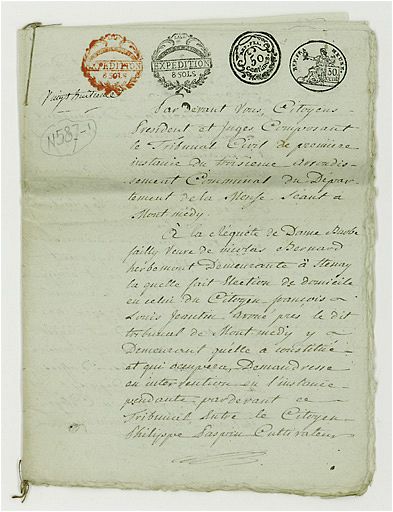 EXPEDITION
8 SOLS
EXPEDITION
8 SOLS
50
50
N587-1
Pardevant Vous, Citoyens
President et Juges Composant
le Tribunal Civil de premiere
instance du troisieme arrondis-
sement Communal du Depar-
tement de la Meuse Séant a
Montmédy.
À la Requête de Dame Barbe
failly Veuve de nicolas Bernard
herbemont Demeurante à Stenay
la quelle fait Election de domicile
en celui du Citoyen françois
Louis Jeantin avoué pres le dit
tribunal de Montmedy y
Demeurant quelle a constitué
et qui occupera, Demandresse
en intervention en l'instance
pendante pardevant ce
Tribunal entre le Citoyen
Philippe Cultivateur